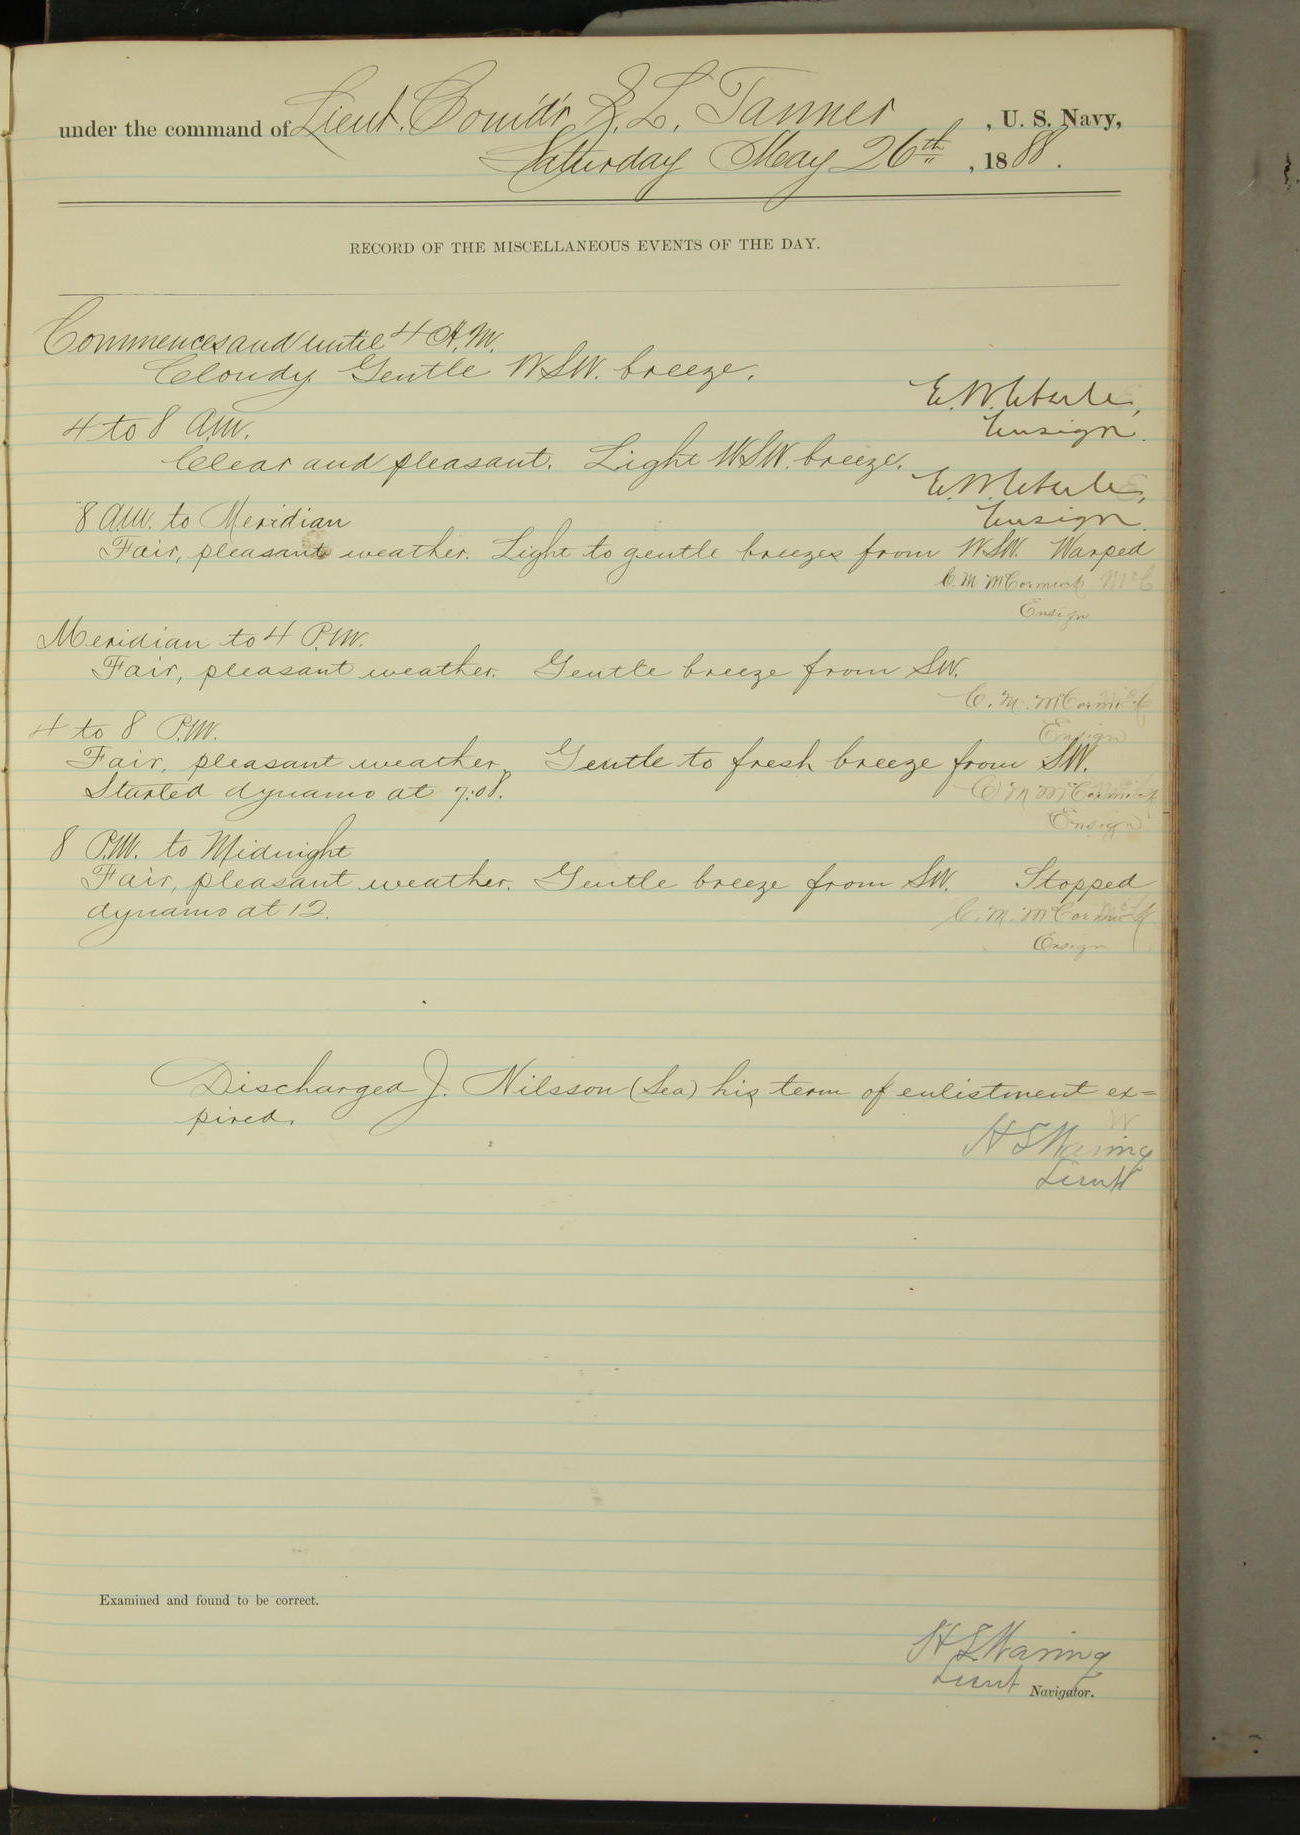 under the command of Lieut. Comdr Z. L. Tanner, U. S. Navy,
Saturday May 26th, 1888.
RECORD OF THE MISCELLANEOUS EVENTS OF THE DAY.
Commences and until 4 A.M.
Cloudy. Gentle WSW. breeze.
E. W. Eberle,
Ensign.
4 to 8 A.M.
Clear and pleasant. Light WSW. breeze.
E. W. Eberle,
Ensign.
8 A.M. to Meridian
Fair, pleasant weather. Light to gentle breezes from WSW. Warped
C. M. McCormick
Ensign
Meridian to 4 P.M.
Fair, pleasant weather. Gentle breeze from SW.
C. M. McCormick
Ensign
4 to 8 P.M.
Fair, pleasant weather. Gentle to fresh breeze from SW.
Started dynamo at 7:08.
C. M. McCormick
Ensign
8 P.M. to Midnight
Fair, pleasant weather. Gentle breeze from SW. Stopped
dynamo at 12.
C. M. McCormick
Ensign
Discharged J. Nilsson (Sea) his term of enlistment ex=
pired.
H S Waring
Lieut
Examined and found to be correct.
H S Waring
Lieut Navigator.